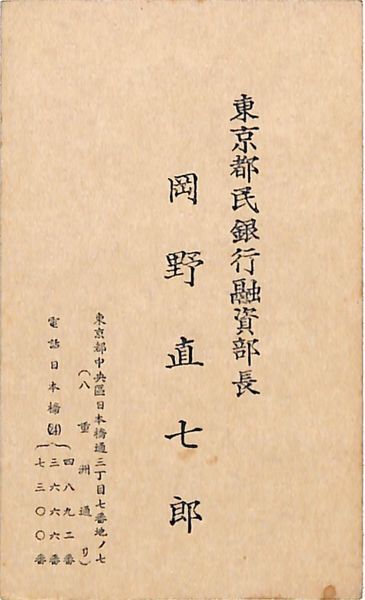 東京都民銀行融資部長
岡野直七郎
東京都中央區日本橋通三丁目七番地ノ七
(八重洲通り)
電話日本橋(24)
四八九二番
三六六六番
七三〇〇番